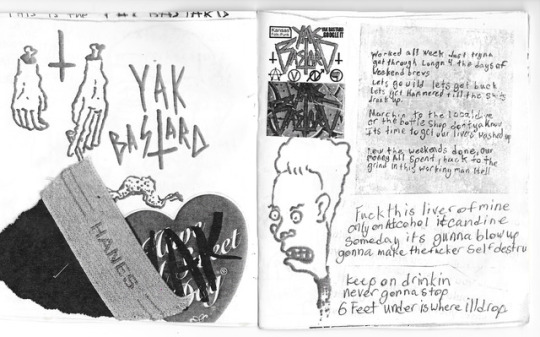 THIS IS THE YAK BASTARDS
YAK
BASTARD
HANES
YAK
Kansas
Folk-Punk
YAK BASTARD
GOOGLE IT
YAK
BASTARD
Worked all week Just tryna
get through Longn 4 the days of
Weekend brews
Lets go wild lets get back
Lets get Hammered till the
dries up
Marchin to the local dive
or the bottle shop dont ya know
its time to get our livers Washed up
now the weekends done, our
money All Spend, back to the
grind in this working man Hell
Fuck this liver of mine
only on Alcohol it can dine
Someday its gunna blow up
gonna make the fucker Selfdestru
keep on drinkin
never gonna stop
6 Feet under is where illdrop